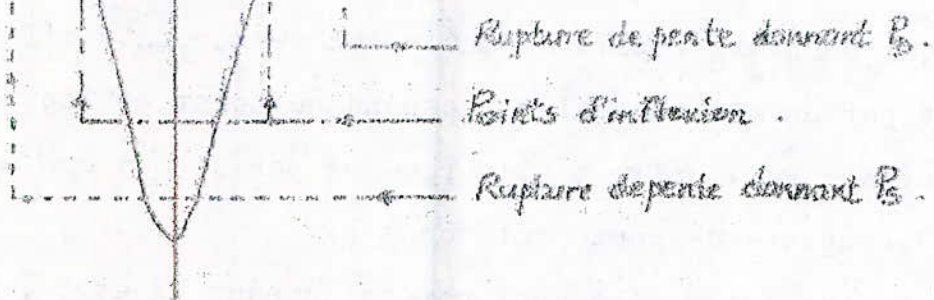 Rupture de pente donnant P₅.
Points d'inflexion
Rupture de pente donnant P₅.